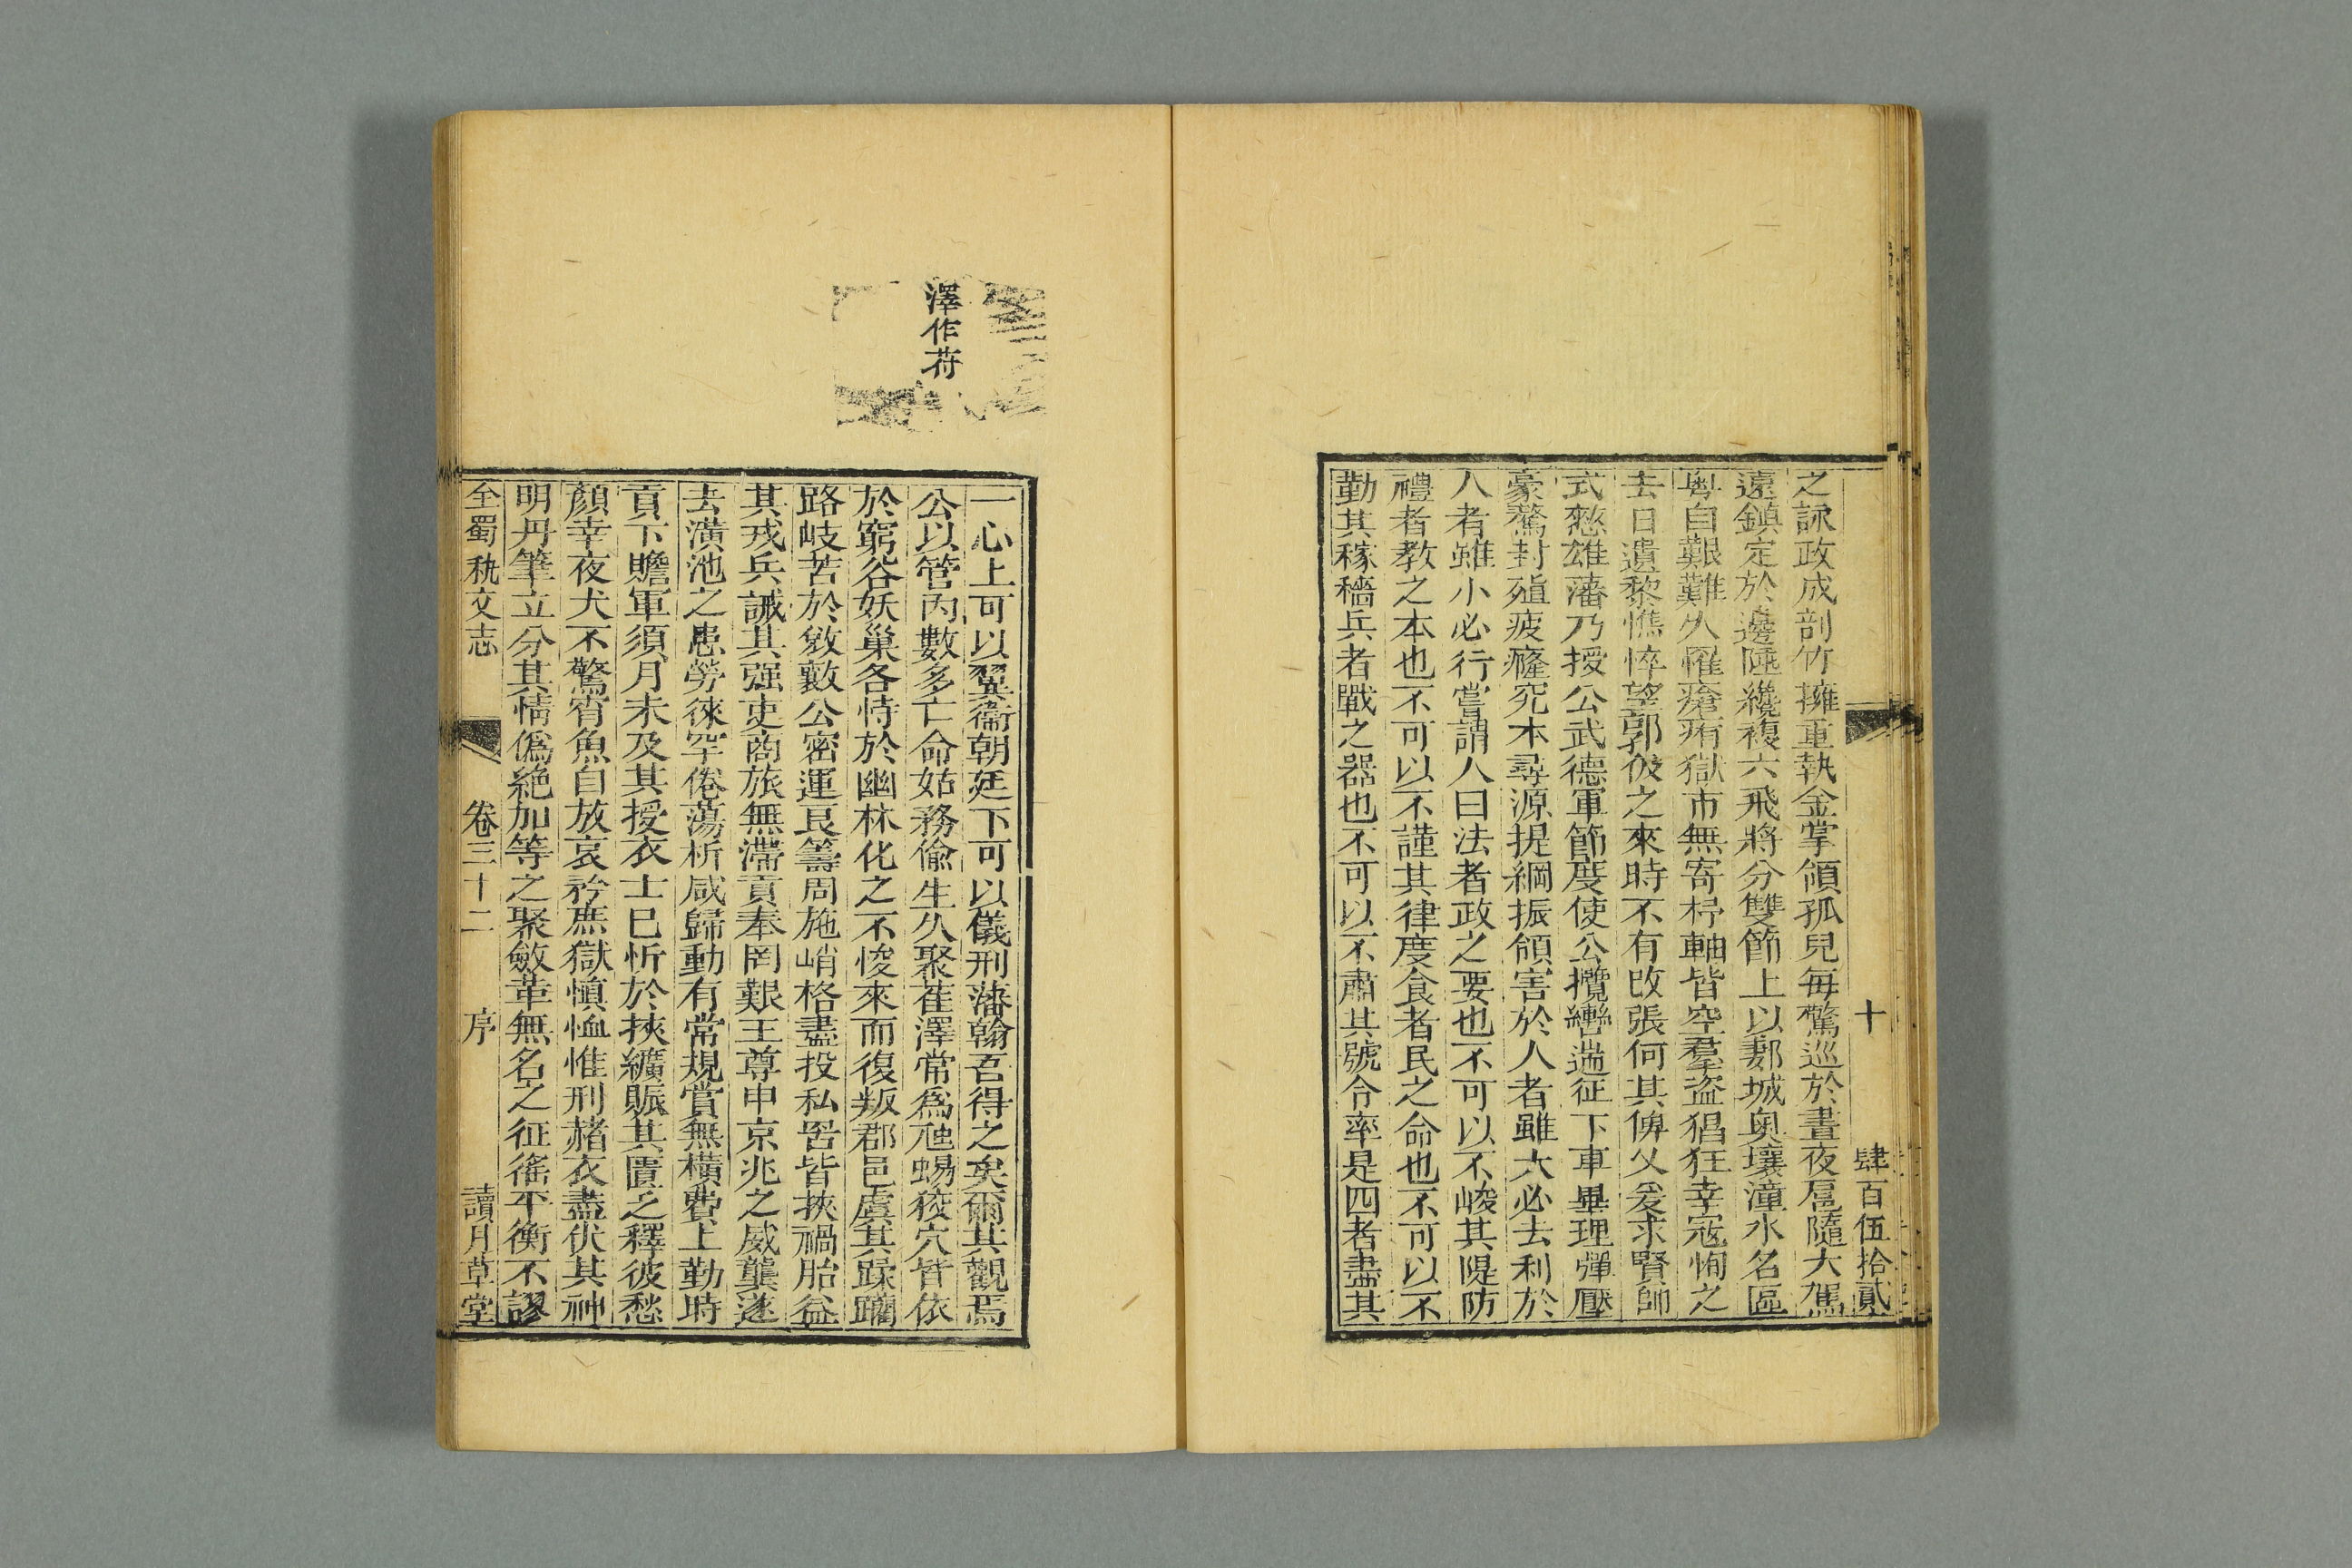 十　肆百伍拾貳
之詠政成剖竹擁重執金掌領孤兒每驚巡於晝夜扈隨大駕
遠鎮定於邊陲纔複六飛將分雙節上以郪城奥壤潼水名區
粤自艱難久罹瘡痏獄市無寄杼軸皆空羣盗猖狂幸寇恂之
去日遺黎憔悴望郭伋之來時不有改張何其俾乂爰求賢帥
式愸雄藩乃授公武德軍節度使公攬轡遄征下車畢理彈壓
豪鶩封殖疲癃究本尋源提綱振領害於人者雖大必去利於
人者雖小必行嘗謂人曰法者政之要也不可以不峻其隄防
禮者教之本也不可以不謹其律度食者民之命也不可以不
勤其稼穡兵者戰之器也不可以不肅其號令率是四者盡其
澤作苻
一心上可以翼衞朝廷下可以儀刑藩翰吾得之矣爾其觀焉
公以管內數多亡命姑務偸生久聚萑澤常爲虺蜴狡穴皆依
於窮谷妖巢各恃於幽林化之不悛來而復叛郡邑虞其蹂躪
路岐苦於敓敺公密運良籌周施峭格盡投私罟皆挾禍胎益
其戎兵誡其强吏商旅無滯貢奉罔艱王尊申京兆之威龔遂
去潢池之患勞徠罕倦蕩析咸歸動有常規賞無橫費上勤時
貢下贍軍須月未及其授衣士巳忻於挾纊賑其匱乏釋彼愁
顏幸夜犬不驚宵魚自放哀矜庶獄愼恤惟刑赭衣盡伏其神
明丹筆立分其情僞絶加等之聚斂革無名之征徭平衡不謬
全蜀秇文志　卷三十二　序　讀月草堂